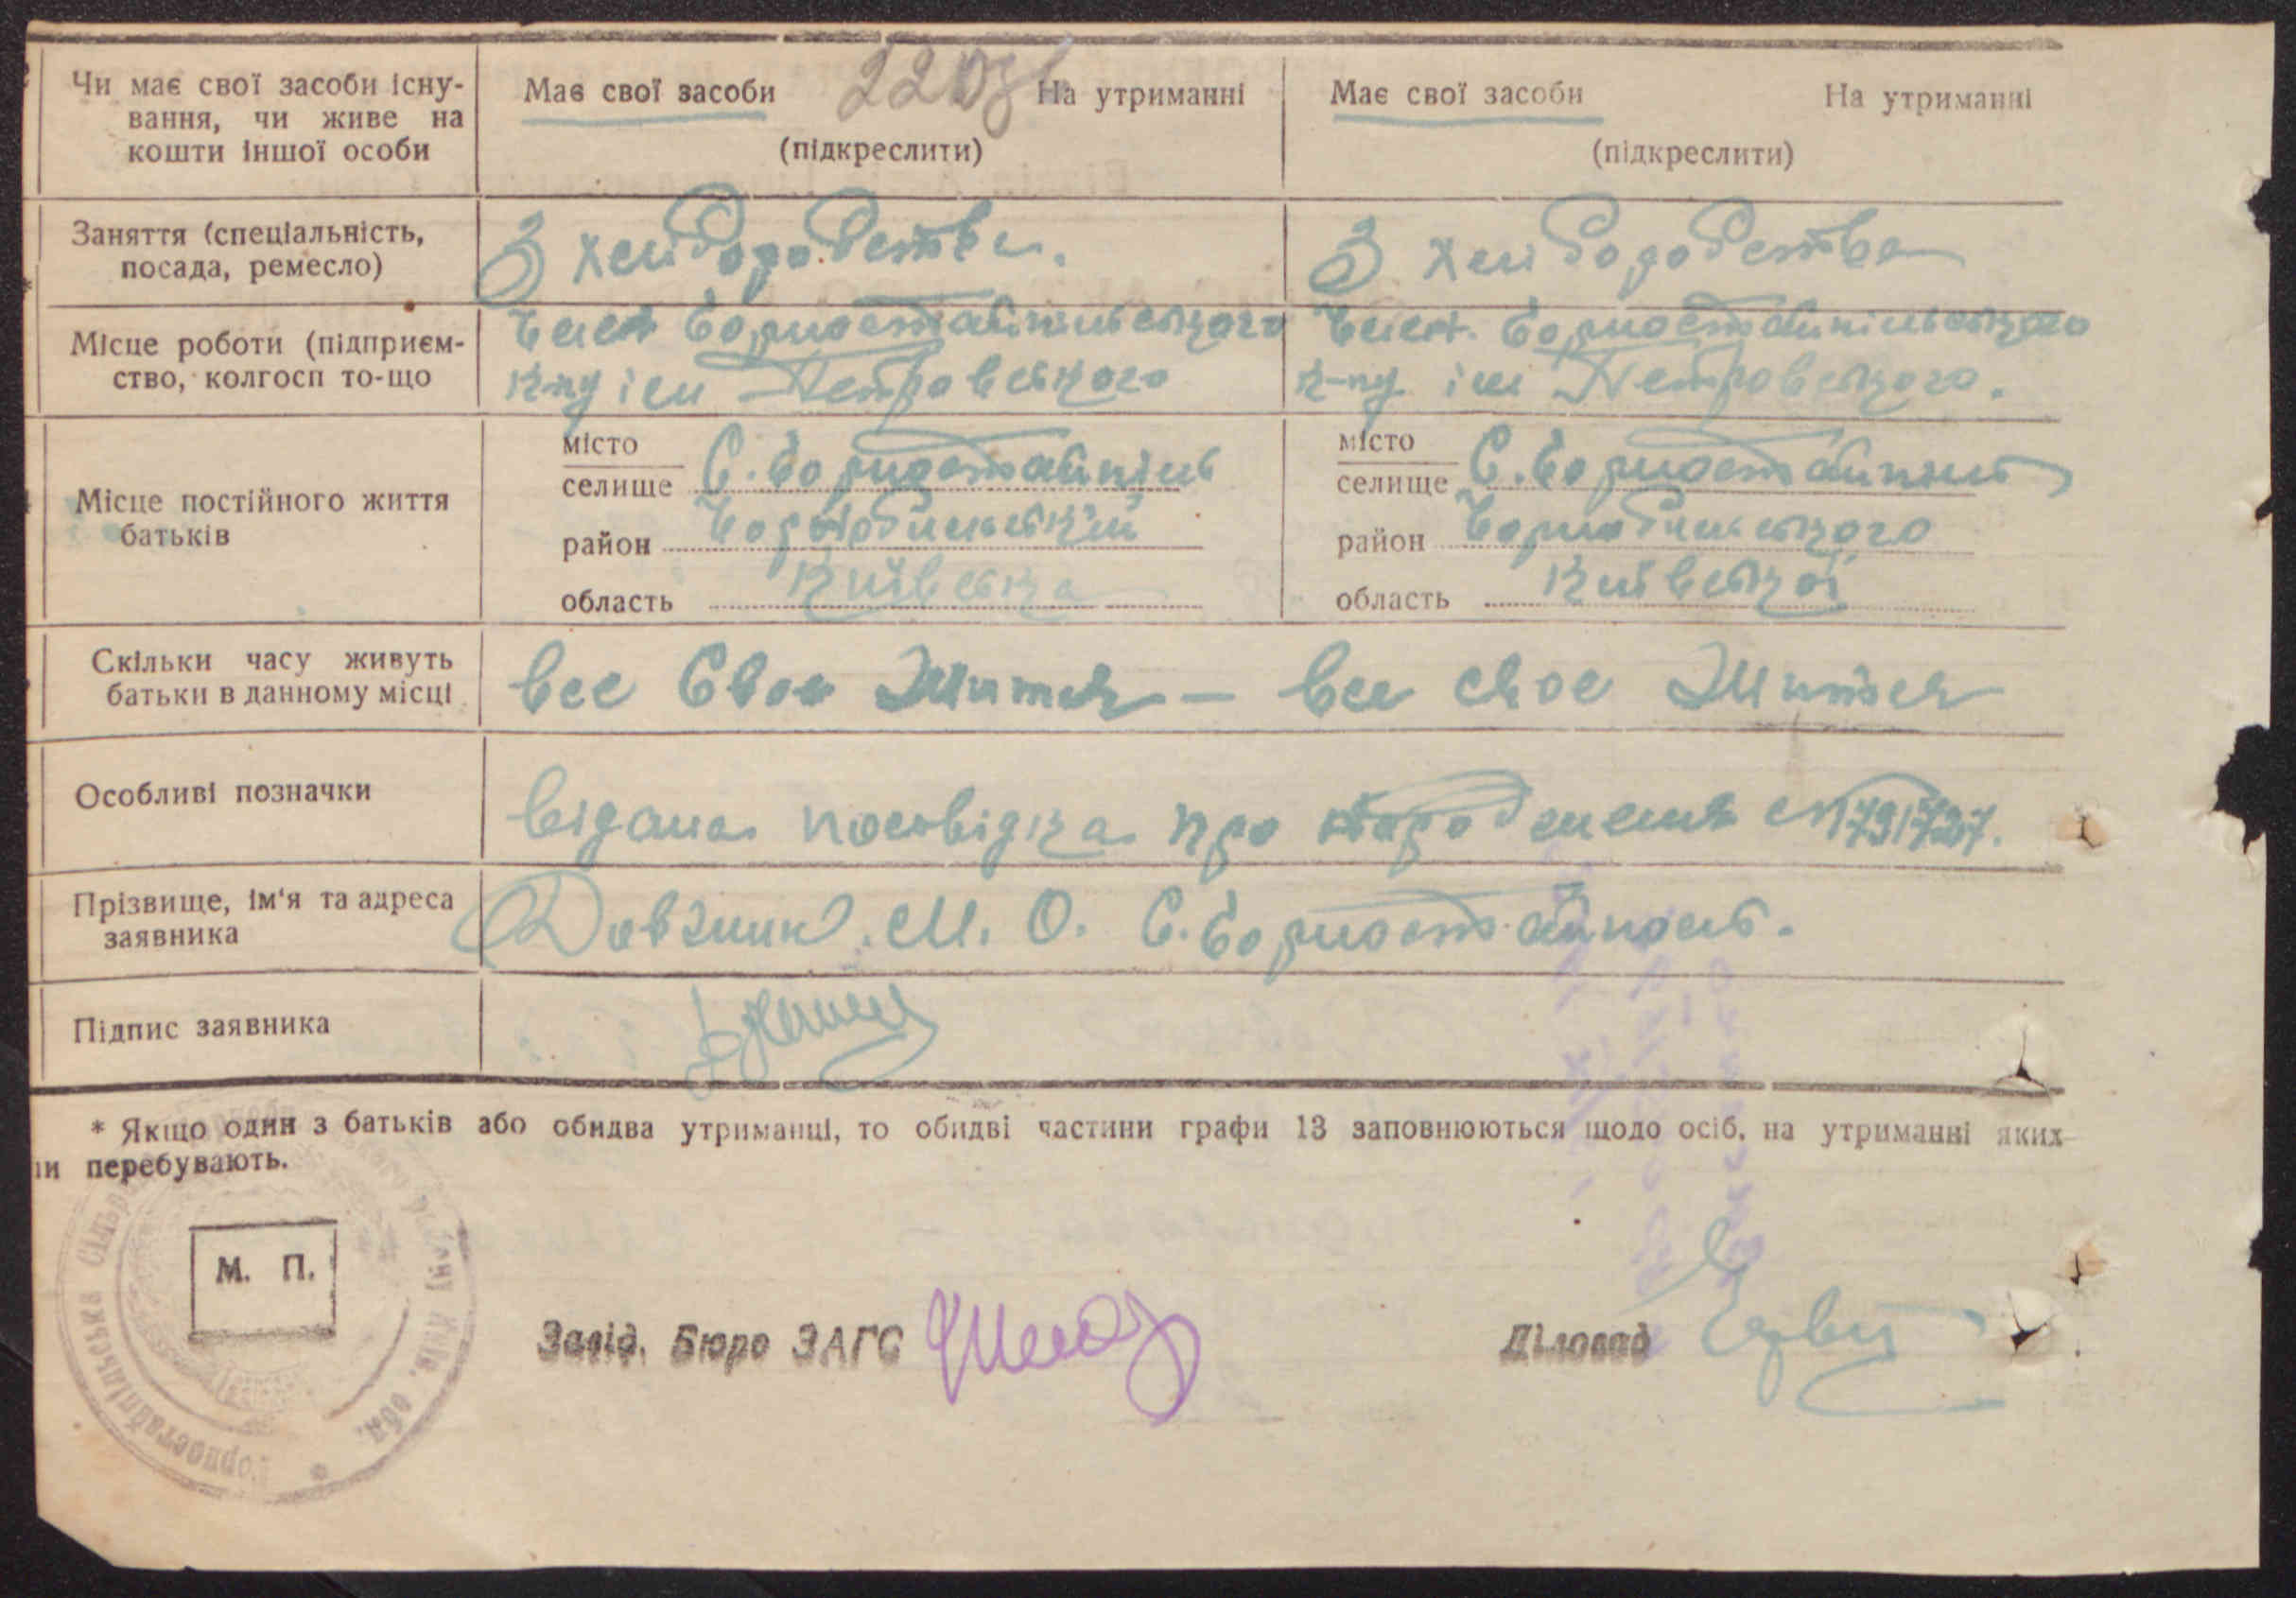 Чи має свої засоби існу- Має свої засоби 220 На утриманні Має свої засоби На утриманні
вання, чи живе на
кошти іншої особи (підкреслити) (підкреслити)
Заняття (спеціальність, З хліборобства. З хліборобства
посада, ремесло)
Місце роботи (підприєм- Член Горностайпільського Член. Горностайпільського
ство, колгосп то-що к-пу ім Петровського к-пу ім Петровського.
місто С. Горностайпіль місто С. Горностайпіль
селище селище
Місце постійного життя
батьків район Чорнобильський район Чорнобильського
область Київська область Київської
Скільки часу живуть Все Своє Життя — Все своє Життя
батьки в данному місці
Особливі позначки Видана посвідка про народження № 791727.
Прізвище, ім'я та адреса Довгник. М. О. С. Горностайпіль.
заявника
Підпис заявника
* Якщо один з батьків або обидва утриманці, то обидві частини графи 13 заповнюються щодо осіб, на утриманні яких
ни перебувають.
М. П.
Завід. Бюро ЗАГС Діловод
Горностайпільська Сільр Київ. обл.